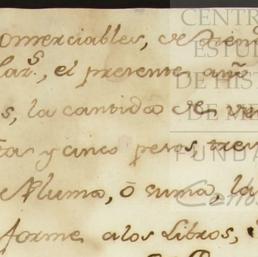 comerciables, se
lar.s, el presente año
s, la cantidad de
tas y cinco pesos, tres
Pluma, ó suma, la
forme a los Libros,
CENTR
ES
DE HIS
DE M
FUNDA